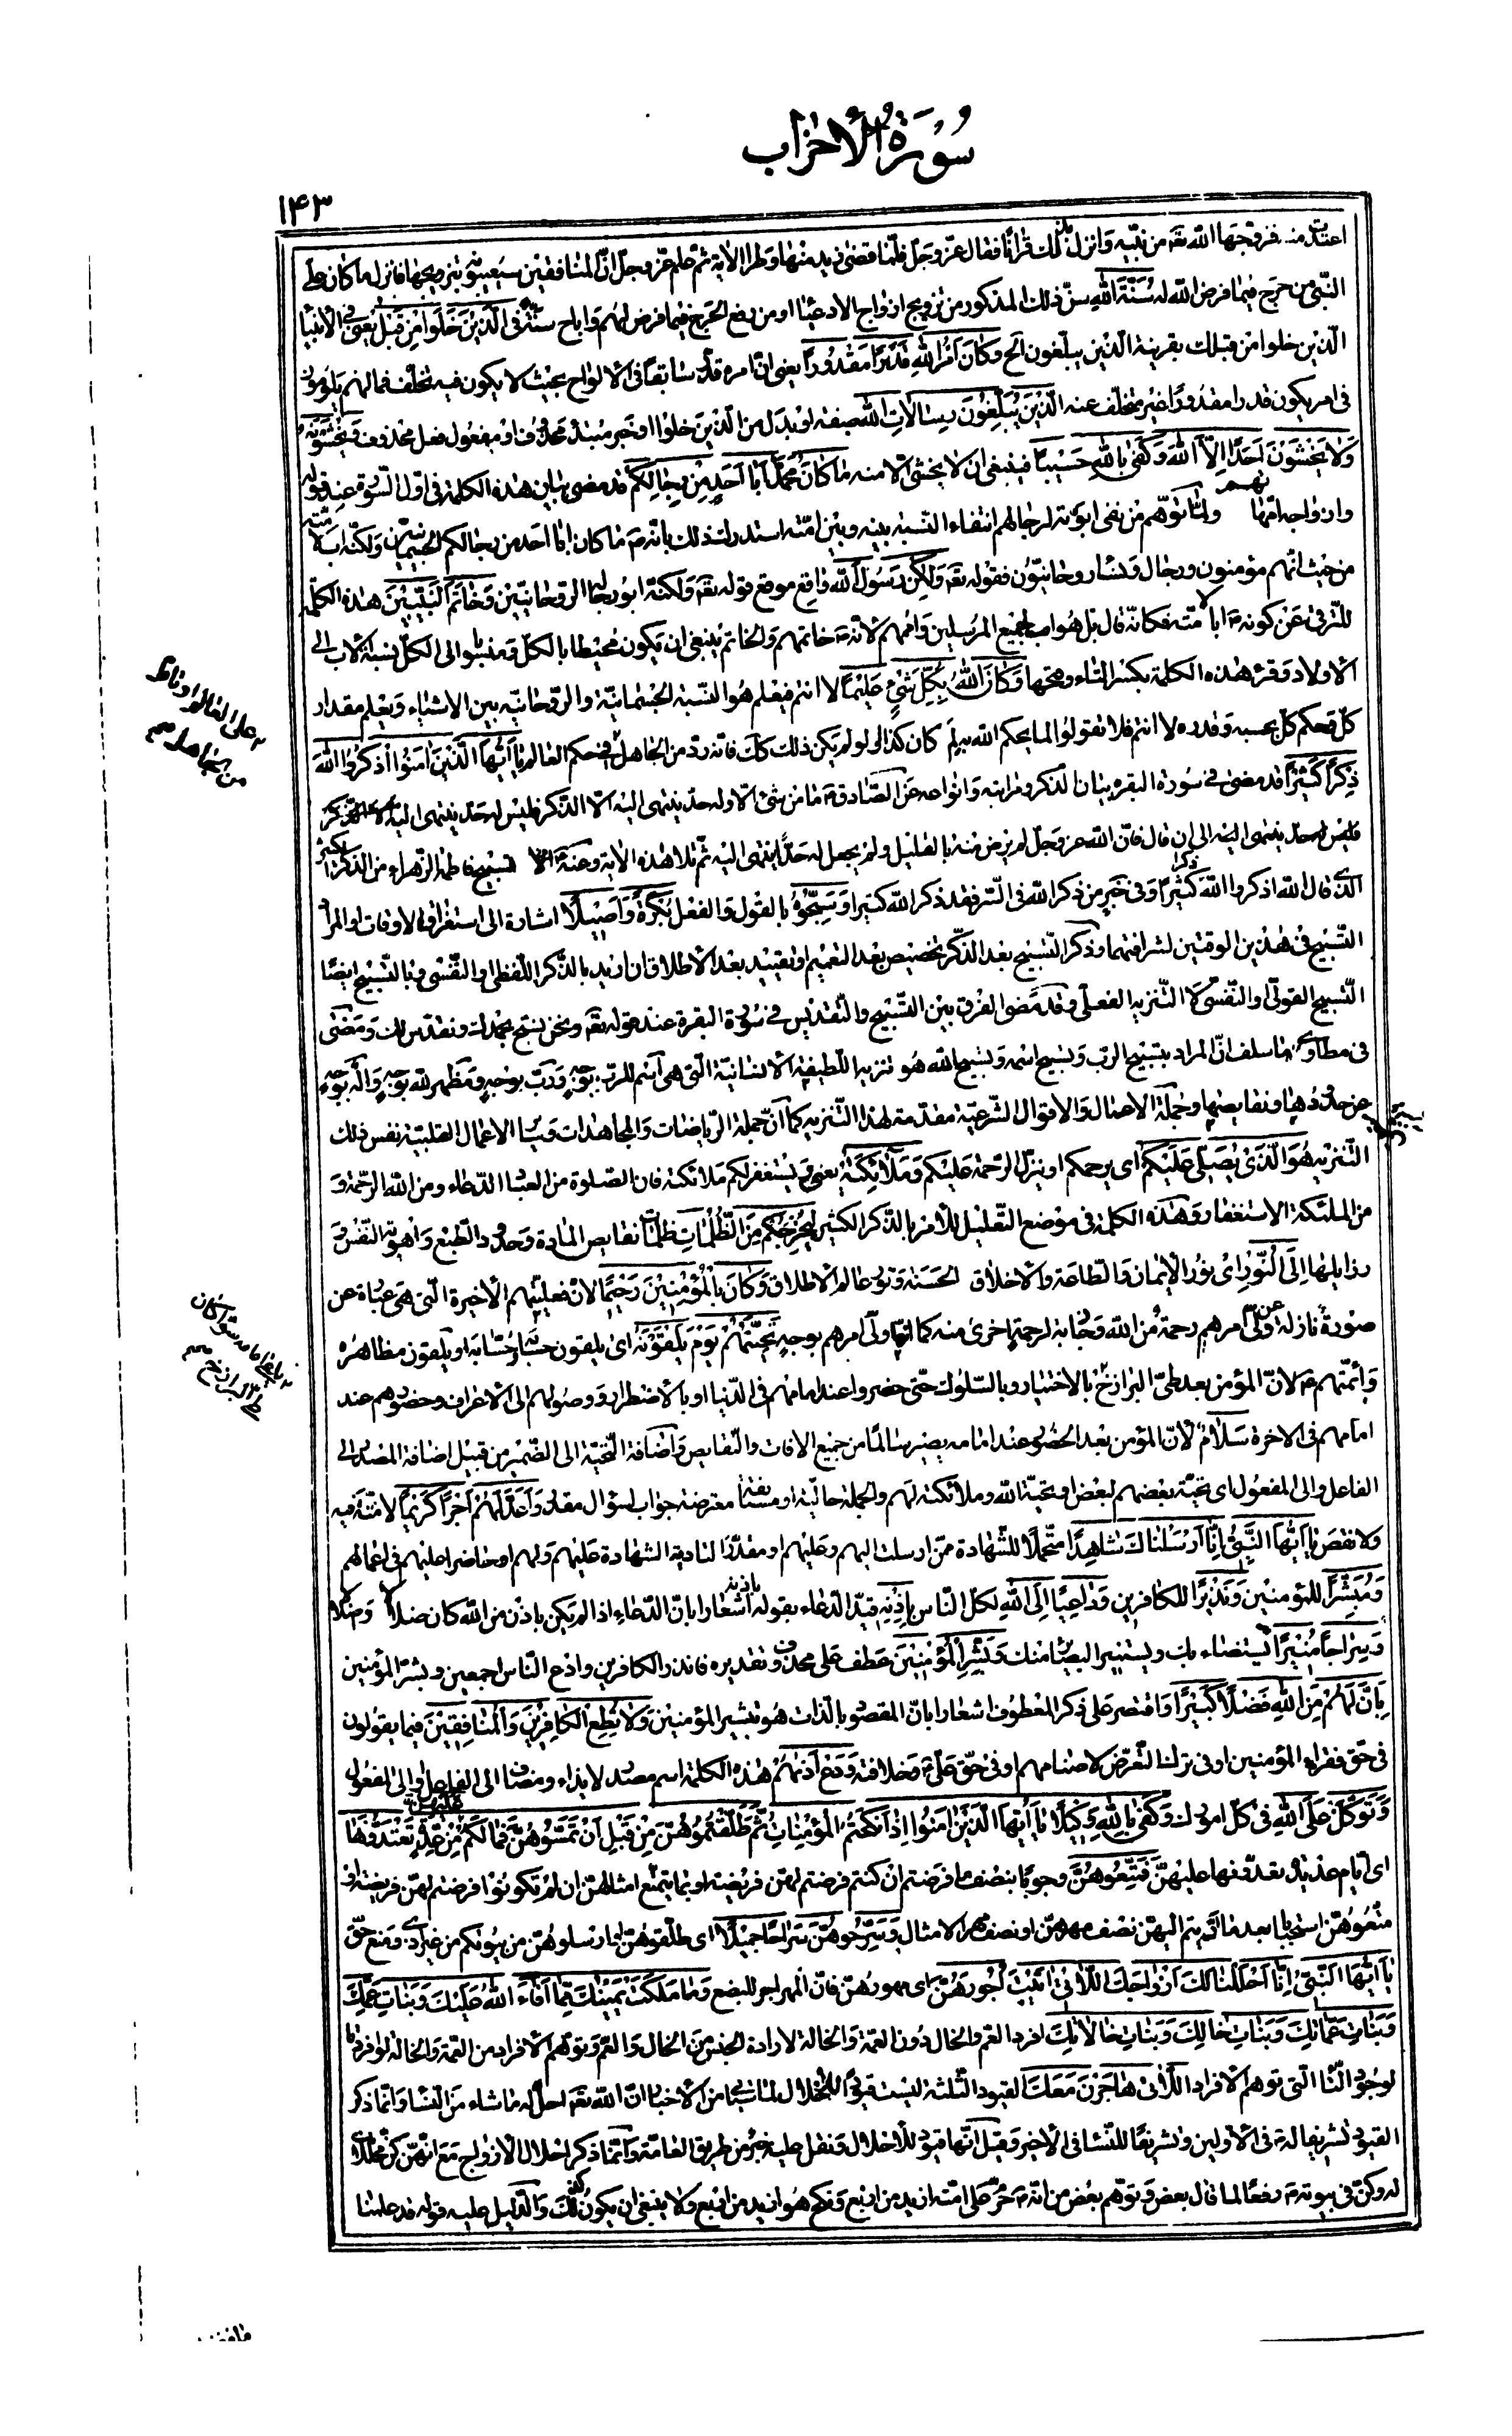 سُورَةُ الْأَحْزَاب
١۴٣
اعتدّت منه فزوّجها الله تعه من نبيّه وانزل بذلك قرانًا فقال عزّ وجلّ فلمّا قضى زيد منها وطرا الاية ثمّ علم عزّ وجلّ انّ المنافقين سيعيبونه بتزويجها فانزل ما كان على
النّبىّ من حرج فيما فرض الله له سُنَّةَ اللهِ سنّ ذلك المذكور من تزويج ازواج الادعياء او من رفع الحرج فيما فرض لهم واباح سنّة فِى الَّذِينَ خَلَوْا مِنْ قَبْلُ يعنى فى الانبياء
الّذين خلوا من قبلك بقرينة الّذين يبلّغون الخ وَكَانَ اَمْرُ اللهِ قَدَرًا مَقْدُورًا يعنى انّ امره قدّر سابقًا فى الالواح بحيث لا يكون فيه تخلّف فما لهم يلومون
فى امر يكون قدرا مقدورًا غير متخلّف عنه الَّذِينَ يُبَلِّغُونَ رِسَالَاتِ اللهِ صفة او بدل من الّذين خلوا او خبر مبتدء محذوف او مفعول فعل محذوف وَيَخْشَوْنَهُ
وَلَا يَخْشَوْنَ اَحَدًا اِلَّا اللهَ وَكَفَى بِاللهِ حَسِيبًا فينبغى ان لا يخشى الّا منه مَا كَانَ مُحَمَّدٌ اَبَا اَحَدٍ مِنْ رِجَالِكُمْ قد مضى بيان هذه الكلمة فى اوّل السّورة عند قوله
وازواجه امّهاتهم ولمّا توّهم من نفى ابوّته لرجالهم انتفاء النّسبة بينه وبين امّته استدرك ذلك بانّه ص ما كان ابا احد من رجالكم الجسمانيّين ولكنّه اب لامّته
من حيث انّهم مؤمنون ورجال ونساء روحانيّون فقوله تعه وَلَكِنْ رَسُولَ اللهِ واقع موقع قوله تعه ولكنّه ابو رجالها الرّوحانيّين وَخَاتَمَ النَّبِيّينَ هذه الكلمة
للتّرقّى عن كونه ص ابا لامّته فكانّه قال بل هو اب لجميع المرسلين واممهم لانّه ص خاتمهم والخاتم ينبغى ان يكون محيطا بالكلّ ومنسوبا الى الكلّ نسبة الاب الى
الاولاد وقرء هذه الكلمة بكسر التّاء وفتحها وَكَانَ اللهُ بِكُلِّ شَىْءٍ عَلِيمًا لا انتم فيعلم هو النّسبة الجسمانيّة والرّوحانيّة بين الاشياء ويعلم مقدار
كلّ وحكم كلّ بحسبه وقدره لا انتم فلا تقولوا لما يحكم الله به لم كان كذا لو لم يكن ذلك كان فانّه ردّ من الجاهل فى حكم العالم يَا اَيُّهَا الَّذِينَ اٰمَنُوا اذْكُرُوا اللهَ
ذِكْرًا كَثِيرًا قد مضى فى سورة البقرة بيان للذّكر ومراتبه وانواعه عن الصّادق ع ما من شئ الّا وله حدّ ينتهى اليه الّا الذّكر فليس له حدّ ينتهى اليه
فليس له حدّ ينتهى اليه الى ان قال فانّ الله عزّ وجلّ لم يرض منه بالقليل ولم يجعل له حدًّا ينتهى اليه ثمّ تلا هذه الاية وعنه ع تسبيح فاطمة الزّهراء من الذّكر الكثير
الّذى قال الله اذكروا الله ذكرا كثيرا وفى خبر من ذكر الله فى السّر فقد ذكر الله كثيرا وَسَبِّحُوهُ بالقول والفعل بُكْرَةً وَاَصِيلًا اشارة الى استغراق الاوقات او المراد
التّسبيح فى هذين الوقتين لشرافتهما وذكر التّسبيح بعد الذّكر تخصيص بعد التعميم او تقييد بعد الاطلاق ان اريد بالذّكر اللّفظى او النّفسى وبالتّسبيح ايضًا
التّسبيح القولىّ او النّفسىّ لا التّنزيه الفعلىّ وقد مضى الفرق بين التّسبيح والتّقديس فى سورة البقرة عند قوله تعه ونحن نسبّح بحمدك ونقدّس لك ومضى
فى مطاوى ما سلف انّ المراد بتسبيح الربّ وتسبيح اسمه وتسبيح الله هو تنزيه اللّطيفة الانسانيّة الّتى هى اسم للربّ بوجه وربّ بوجه ومظهر لله بوجه واله بوجه
عن حدودها ونقايصها وجملة الاعمال والاقوال الشّرعيّة مقدّمة لهذا التّنزيه كما انّ جملة الرّياضات والمجاهدات وسائر الاعمال القلبيّة نفس ذلك
التّنزيه هُوَ الَّذِى يُصَلِّى عَلَيْكُمْ اى يرحمكم او ينزل الرّحمة عليكم وَمَلَائِكَتُهُ يعنى ويستغفر لكم ملائكته فان الصّلوة من العباد الدّعاء ومن الله الرّحمة و
من الملئكة الاستغفار وهذه الكلمة فى موضع التّعليل للامر بالذّكر الكثير لِيُخْرِجَكُمْ مِنَ الظُّلُمَاتِ ظلمات نقايص المادة وحدود الطّبع واهوية النّفس و
رذايلها اِلَى النُّورِ اى نور الايمان والطّاعة والاخلاق الحسنة ونور عالم الاطلاق وَكَانَ بِالْمُؤْمِنِينَ رَحِيمًا لانّ فعليّتهم الاخيرة الّتى هى عبارة عن
صورة نازلة عن ولىّ امرهم رحمة من الله وجاذبة لرحمة اخرى منه كما انّها ولىّ امرهم بوجه تَحِيَّتُهُمْ يَوْمَ يَلْقَوْنَهُ اى يلقون حسابه او يلقون مظاهره
وائمّتهم ع لانّ المؤمن بعد طىّ البرازخ بالاختيار وبالسّلوك حتّى حضروا عند امامهم فى الدّنيا او بالاضطرار ووصولهم الى الاعراف وحضورهم عند
امامهم فى الاخرة سَلَامٌ لانّ المؤمن بعد الحضور عند امامه يصير سالمًا من جميع الافات والنّقايص واضافة التّحيّة الى الضّمير من قبيل اضافة المصدر الى
الفاعل والى المفعول اى تحيّة بعضهم لبعض او تحيّة الله وملائكته لهم والجملة حاليّة او مستأنفة معترضة جواب لسؤال مقدّر وَاَعَدَّ لَهُمْ اَجْرًا كَرِيمًا لا منّة فيه
ولا نقص يَا اَيُّهَا النَّبِىُّ اِنَّا اَرْسَلْنَاكَ شَاهِدًا متحمّلًا للشّهادة ممّن ارسلت اليهم وعليهم او مقدّرًا لتادية الشهادة عليهم ولهم او حاضرا عليهم فى اعمالهم
وَمُبَشِّرًا للمؤمنين وَنَذِيرًا للكافرين وَدَاعِيًا اِلَى اللهِ لكلّ النّاس بِاِذْنِهِ قيّد الدّعاء بقوله باذنه اشعارا بانّ الدّعاء اذا لم يكن باذن من الله كان ضلالا
وَسِرَاجًا مُنِيرًا يستضاء بك ويستنير البصائر منك وَبَشِّرِ الْمُؤْمِنِينَ عطف على محذوف وتقديره فانذر الكافرين وادع النّاس اجمعين وبشّر المؤمنين
بِاَنَّ لَهُمْ مِنَ اللهِ فَضْلًا كَبِيرًا واقتصر على ذكر المعطوف اشعارا بانّ المقصود بالذات هو تبشير المؤمنين وَلَا تُطِعِ الْكَافِرِينَ وَالْمُنَافِقِينَ فيما يقولون
فى حقّ فقراء المؤمنين او فى ترك التّعرّض لاصنامهم او فى حقّ علىّ ع وخلافته وَدَعْ اَذٰهُمْ هذه الكلمة اسم مصدر لايذاء ومضاف الى الفاعل او الى المفعول
وَتَوَكَّلْ عَلَى اللهِ فى كلّ امورك وَكَفَى بِاللهِ وَكِيلًا يَا اَيُّهَا الَّذِينَ اٰمَنُوا اِذَا نَكَحْتُمُ الْمُؤْمِنَاتِ ثُمَّ طَلَّقْتُمُوهُنَّ مِنْ قَبْلِ اَنْ تَمَسُّوهُنَّ فَمَا لَكُمْ عَلَيْهِنَّ مِنْ عِدَّةٍ تَعْتَدُّونَهَا
اى ايّام عدّة تعدّونها عليهنّ فَمَتِّعُوهُنَّ وجوبًا بنصف ما فرضتم ان كنتم فرضتم لهنّ فريضة او بما يتمتّع امثالهنّ ان لم تكونوا فرضتم لهنّ فريضة او
متّعوهنّ استحبابا بعد ما ادّيتم اليهنّ نصف مهرهنّ او نصف مهر الامثال وَسَرِّحُوهُنَّ سَرَاحًا جَمِيلًا اى طلّقوهنّ او ارسلوهنّ من بيوتكم من غير اذى ومنع حقّ
يَا اَيُّهَا النَّبِىُّ اِنَّا اَحْلَلْنَا لَكَ اَزْوَاجَكَ اللَّاتِى اٰتَيْتَ اُجُورَهُنَّ اى مهورهنّ فانّ المهر اجر للبضع وَمَا مَلَكَتْ يَمِينُكَ مِمَّا اَفَاءَ اللهُ عَلَيْكَ وَبَنَاتِ عَمِّكَ
وَبَنَاتِ عَمَّاتِكَ وَبَنَاتِ خَالِكَ وَبَنَاتِ خَالَاتِكَ افرد العم والخال دون العمّة والخالة لارادة الجنس من الخال والعم وتوهّم الافراد من العمّة والخالة لو افردتا
لوجود التّاء الّتى توهم الافراد اللَّاتِى هَاجَرْنَ مَعَكَ القيود الثّلثة ليست قيودًا للاحلال لما سيأتى من الاخبار انّ الله تعه احلّ له ما شاء من النّساء وانّما ذكر
القيود تشريفا له ص فى الاوّلين وتشريفًا للنّساء فى الاخير وقيل انّها قيود للاحلال ونقل عليه خبر من طريق العامّة وانّما ذكر احلال الازواج مع انّهنّ كنّ محلّلات
له وكنّ فى بيوته ص رفعًا لما قال بعض وتوهّم بعض من انّه ص حرّم على امّته ازيد من اربع ونكح هو ازيد من اربع ولا ينبغى ان يكون كذلك والدّليل عليه قوله قد علمنا